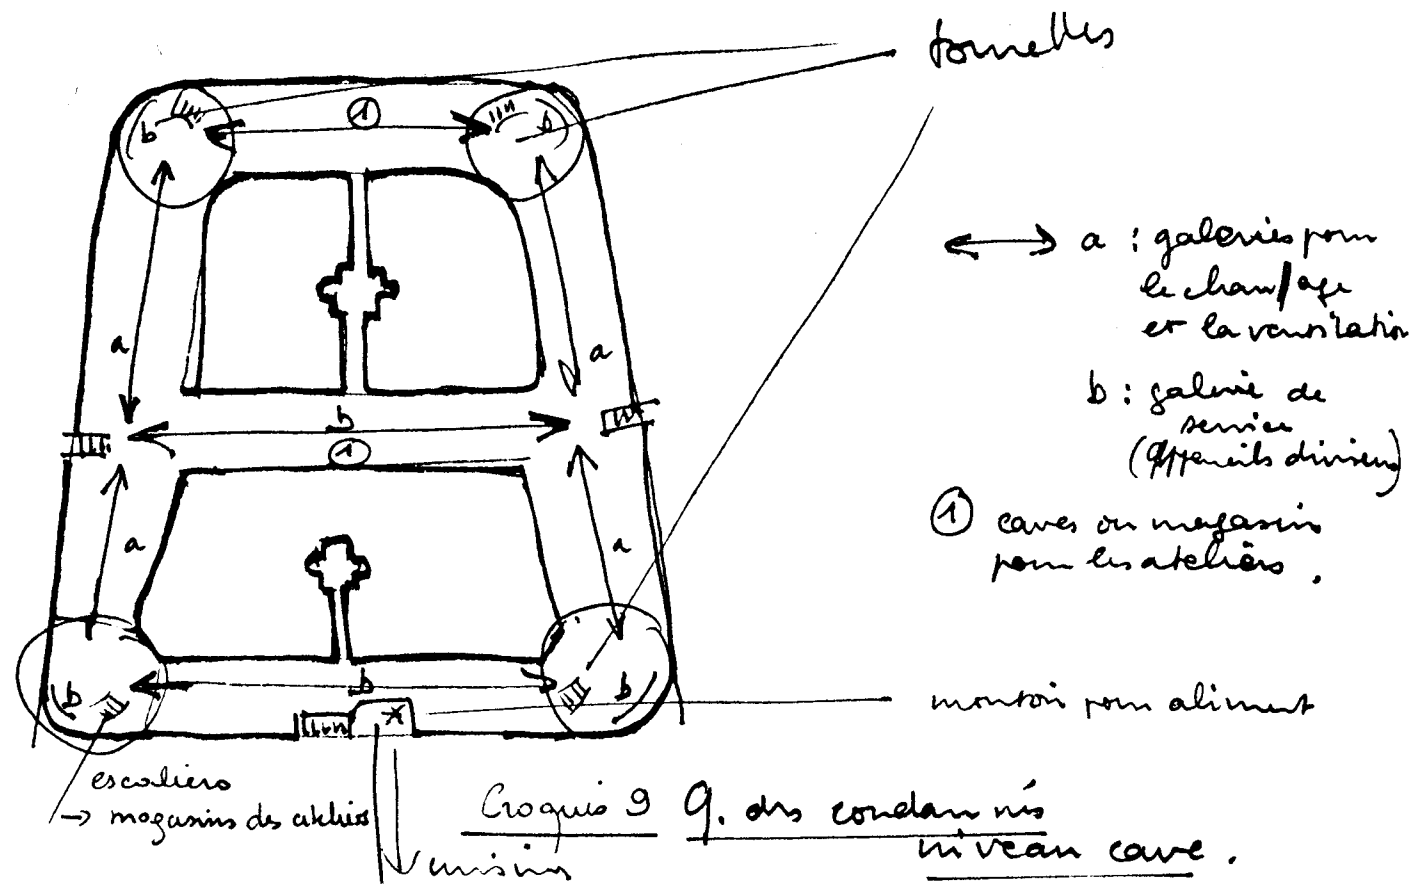 tourelles
1
b
b
a : galeries pour
le chauffage
et la ventilation
a
a
b
b : galerie de
service
(appareils divisers)
1
1 caves ou magasins
pour les ateliers.
a
a
b
b
b
montoir pour aliment
escaliers
→ magasins des ateliers
Croquis 9 Q. des condamnés
niveau cave.
cuisines